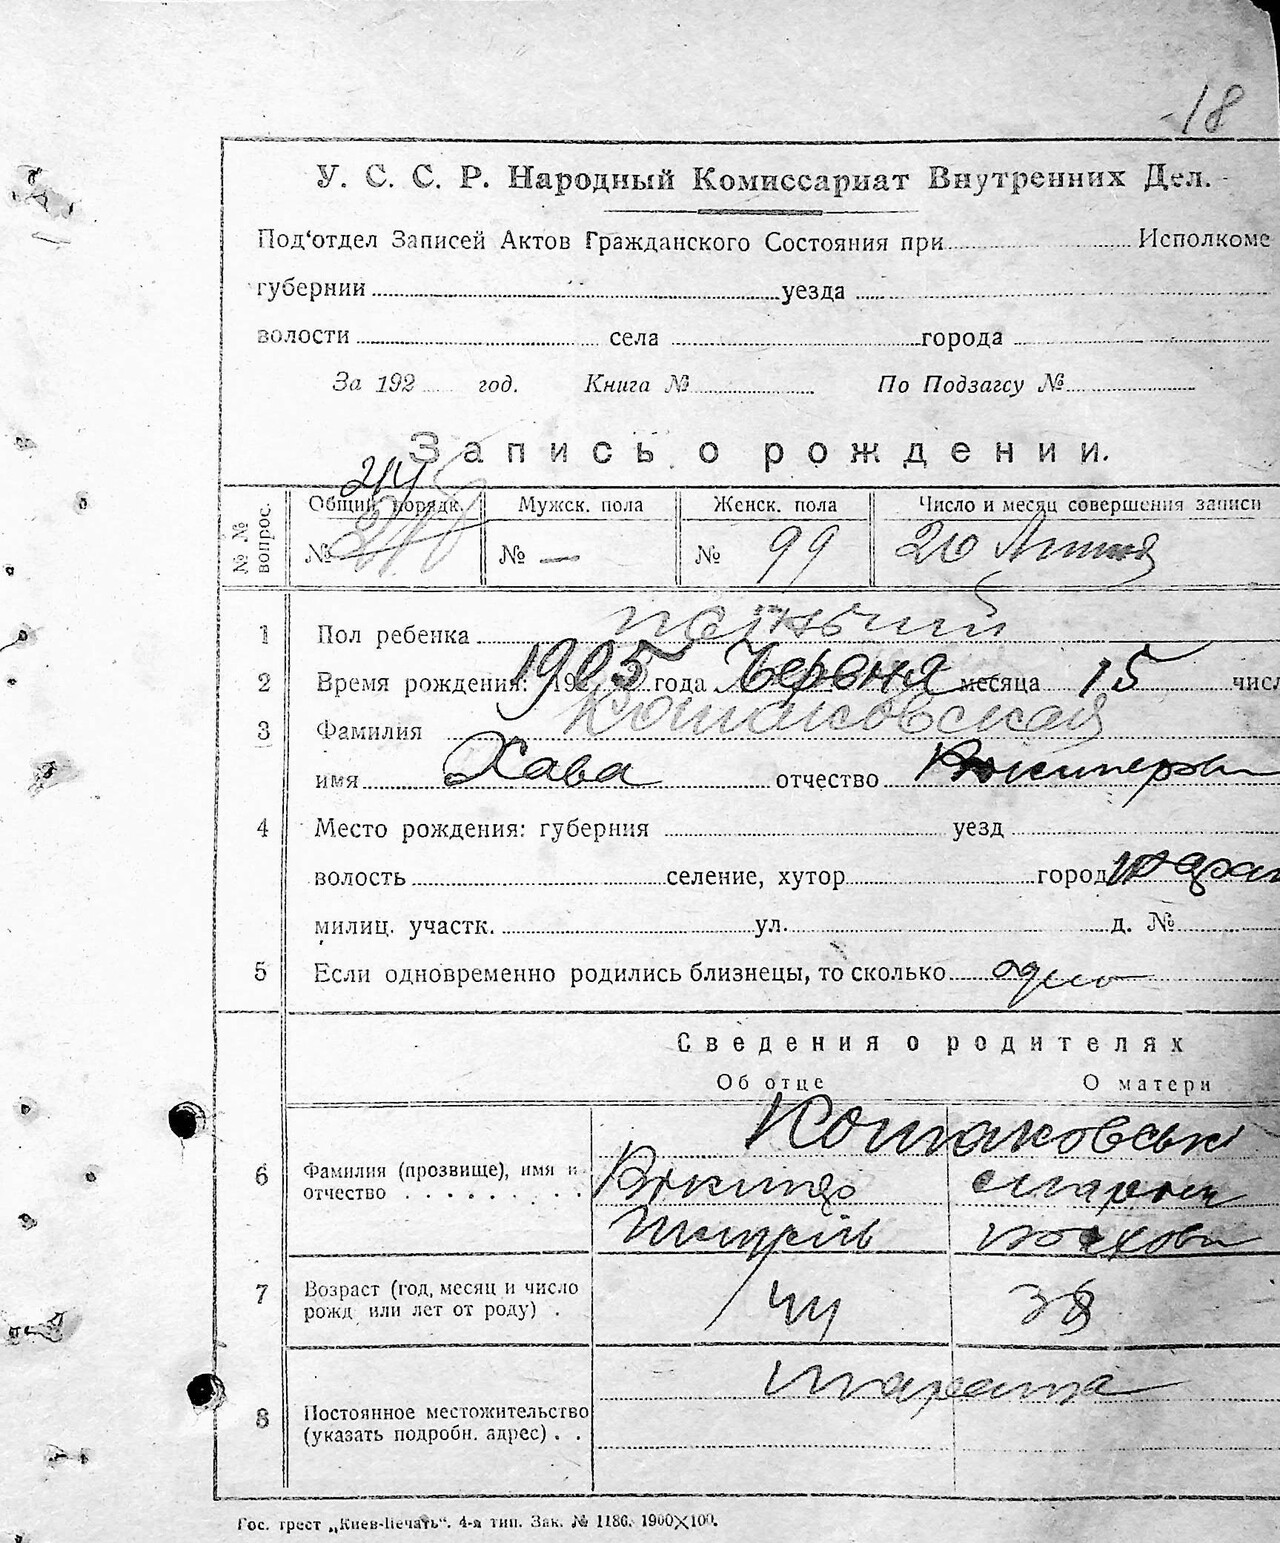 18
У. С. С. Р. Народный Комиссариат Внутренних Дел.
Под'отдел Записей Актов Гражданского Состояния при Исполкоме
губернии уезда
волости села города
За 192 год. Книга № По Подзагсу №
Запись о рождении.
214
№ № вопрос. Общий порядк. Мужск. пола Женск. пола Число и месяц совершения записи
№ 218 № — № 99 20
1 Пол ребенка
2 Время рождения: 192 1905 года Червня месяца 15 числ
3 Фамилия
имя Хава отчество
4 Место рождения: губерния уезд
волость селение, хутор город
милиц. участк. ул. д. №
5 Если одновременно родились близнецы, то сколько одно
Сведения о родителях
Об отце О матери
6 Фамилия (прозвище), имя и
отчество . . . . . . . . .
7 Возраст (год, месяц и число 44 38
рожд или лет от роду) .
Тараща
8 Постоянное местожительство
(указать подробн. адрес) . .
Гос. трест „Киев-Печать“. 4-я тип. Зак. № 1186. 1900×100.